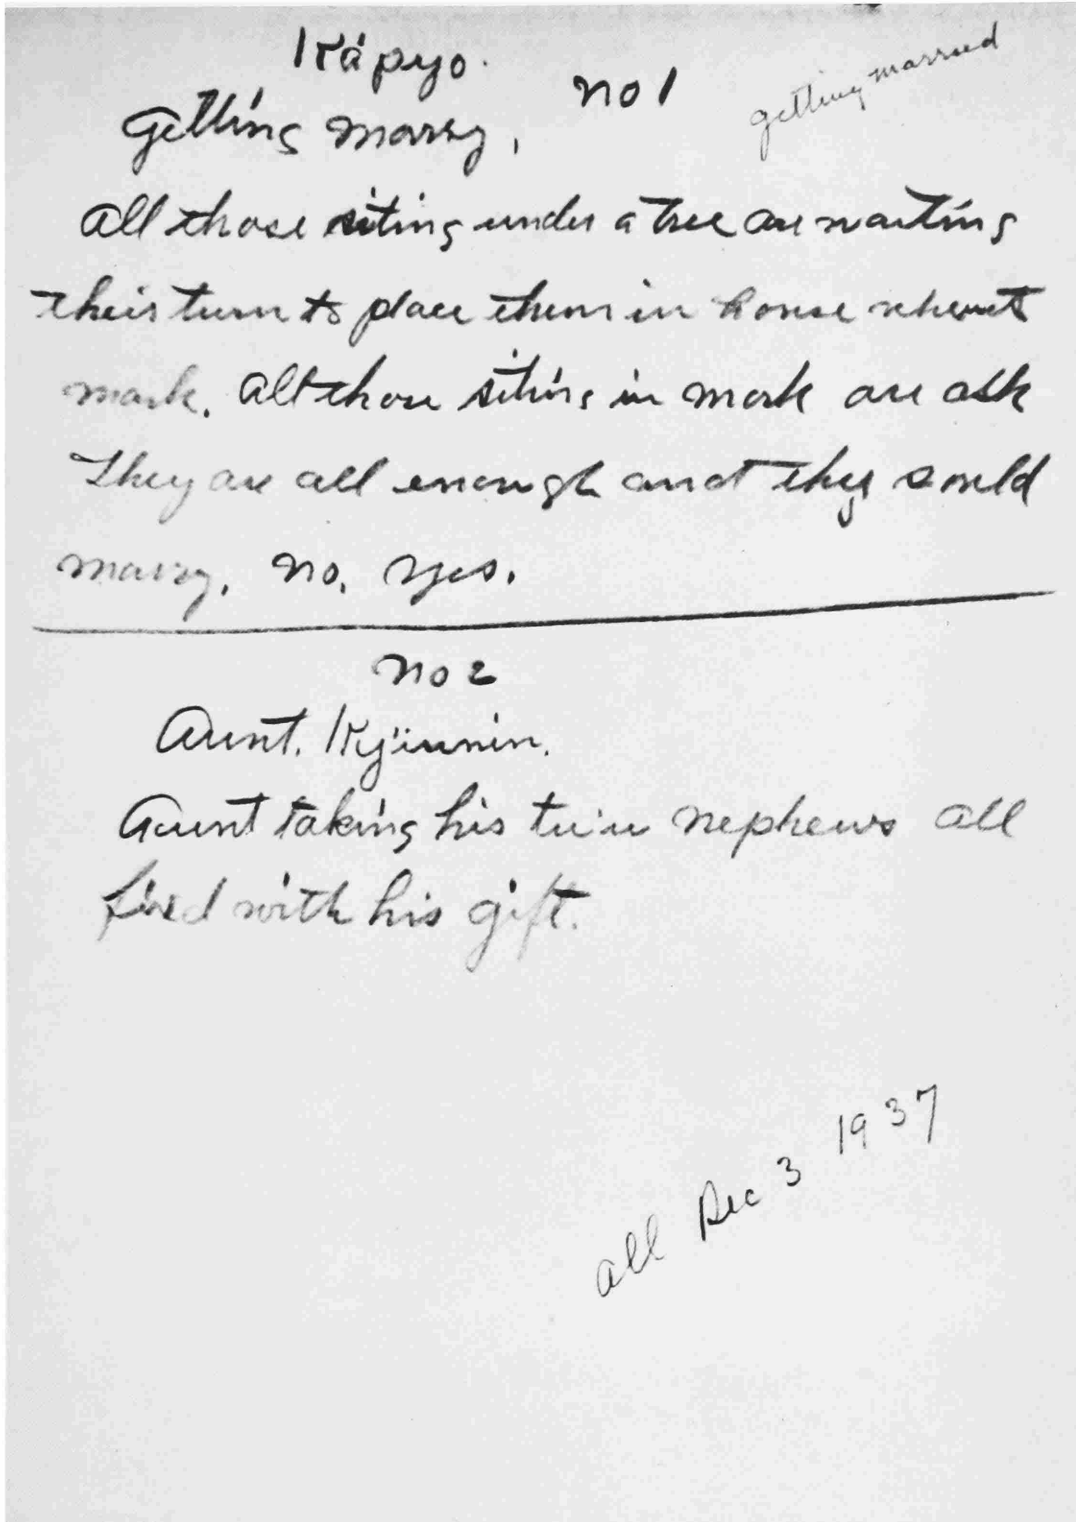 Kápyo.
no 1
getting married
Getting marry,
All those siting under a tree are waiting
their turn to place them in house
mark. All those siting in mark are ask
They are all enough and they sould
marry. no, yes.
no 2
Aunt.
Aunt taking his nephews all
fixd with his gift.
all Dec 3 1937